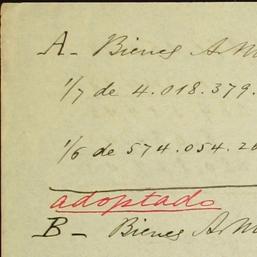 A- Bienes AM
1/7 de 4.018.379.
1/6 de 574.054.26
adoptado
B- Bienes AM